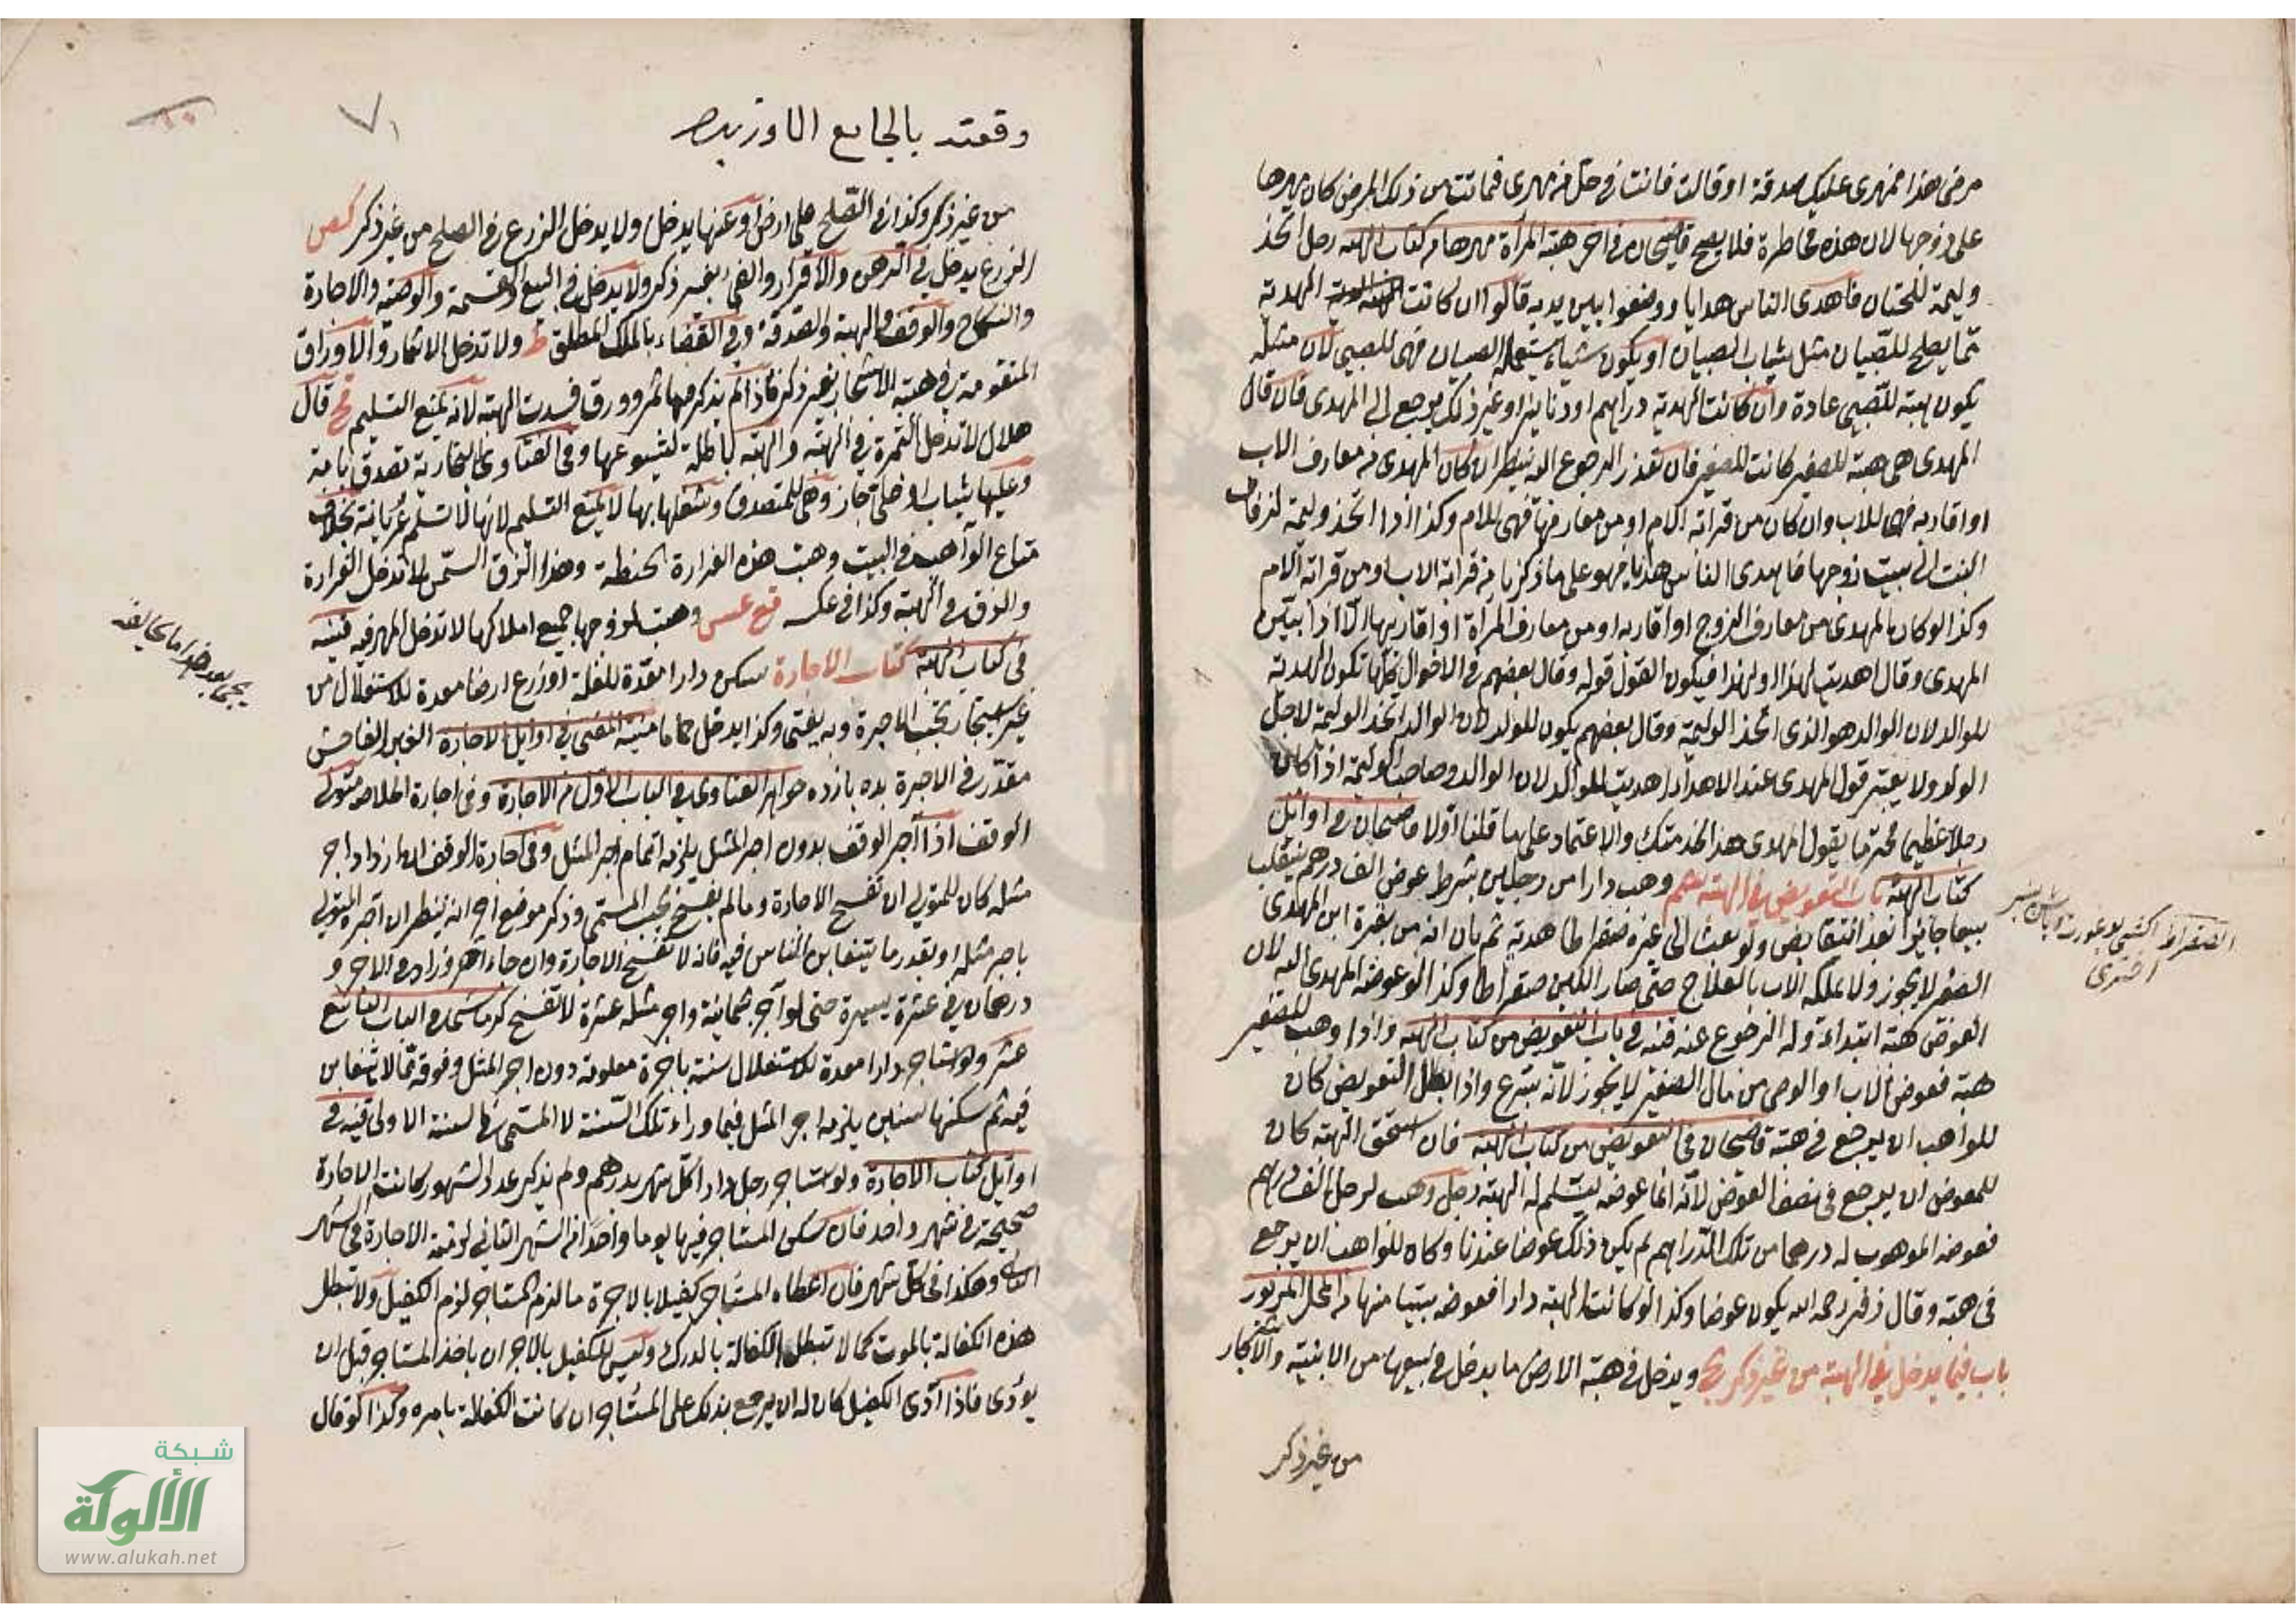 مرضى هذا فمهرى عليك صدقة او قالت فانت فى حل من مهرى فماتت من ذلك المرض كان مهرها
على زوجها لان هذه مخاطرة فلا يصح قاضيخان فى اخر هبة المرأة مهرها من كتاب الهبه رجل اتخذ
وليمة للختان فاهدى الناس هدايا ووضعوا بين يديه قالوا ان كانت الهدية
مما يصلح للصبيان مثل ثياب الصبيان او يكون شياء يستعمله الصبيان فهى للصبى لان مثله
يكون هبة للصبى عادة وان كانت الهدية دراهم او دنانير او غير ذلك يرجع الى المهدى فان قال
المهدى هى هبة للصغير كانت للصغير فان تعذر الرجوع اليه ينظر ان كان المهدى من معارف الاب
او اقاربه فهى للاب وان كان من قرابة الام او من معارفها فهى للام وكذا اذا اتخذ وليمة لزفاف
البنت الى بيت زوجها فاهدى الناس هدايا فهو على ما ذكرنا من قرابة الاب او من قرابة الام
وكذا لو كان المهدى من معارف الزوج او اقاربه او من معارف المرأة او اقاربها الا اذا بين
المهدى وقال اهديت لهذا او لهذا فيكون القول قوله وقال بعضهم فى الاحوال كلها تكون الهدية
للوالد لان الوالد هو الذى اتخذ الوليمة وقال بعضهم يكون للولد لان الوالد اتخذ الوليمة لاجل
الولد ولا يعتبر قول المهدى عند الاهداء اهديت للوالد لان الوالد صاحب الوليمة اذا كان
رجلا عظيما محترما يقول المهدى هذا لخدمتك والاعتماد على ما قلنا اولا قاضيخان فى اوائل
كتاب الهبة باب التعويض فى الهبة وهب دارا من رجلين بشرط عوض الف درهم ينقلب
بيعا جائزا بعد التقابض ولو بعث الى غيره صقراطا هدية ثم بان انه من بقرة ابن المهدى
الصغير لا يجوز ولا يملكه الاب بالعلاج حتى صار اللبن صقراطا وكذا لو عوضه المهدى اليه لان
العوض كهبة ابتداء وله الرجوع عنه قنيه فى باب التعويض من كتاب الهبه واذا وهب للصغير
هبة فعوض الاب او الوصى من مال الصغير لا يجوز لانه تبرع واذا بطل التعويض كان
للواهب ان يرجع فى هبته قاضيخان فى التعويض من كتاب الهبه فان استحق الهبة كان
للمعوض ان يرجع فى نصف العوض لانه انما عوضه ليسلم له الهبة رجل وهب لرجل الف درهم
فعوضه الموهوب له درهما من تلك الدراهم لم يكن ذلك عوضا عندنا وكان للواهب ان يرجع
فى هبته وقال زفر رحمه الله يكون عوضا وكذا لو كانت الهبة دارا فعوضه بيتا منها من المحل المزبور
باب فيما يدخل فى الهبة من غير ذكر ويدخل فى هبة الارض ما يدخل فى بيعها من الابنية والاشجار
من غير ذكر
وقعته بالجامع
من غير ذكر وكذا فى الصلح على ارض او عنها يدخل ولا يدخل الزرع فى الصلح من غير ذكر
الزرع يدخل فى الرهن والاقرار والفئ بغير ذكر ولا يدخل فى البيع والقسمة والوصية والاجارة
والنكاح والوقف والهبة والصدقة وفى القضاء بالملك المطلق ط ولا تدخل الاثمار والاوراق
المتقومة فى هبة الاشجار بغير ذكر فاذا لم يذكر وفيها ثمر وورق فسدت الهبة لانه يمنع التسليم قال
هلال لا تدخل الثمرة فى الهبة والهبة باطلة لشيوعها وفى الفتاوى البخارية تصدق بامة
وعليها ثياب او حلى جاز وهى للمتصدق وشغلها بها لا يمنع التسليم لانها لا تسلم عريانة بخلاف
متاع الواهب فى البيت وهبت هذه الغرارة الحنطة وهذا الزق السمن لا تدخل الغرارة
والزق فى الهبة وكذا فى عكسه وهبت لزوجها جميع املاكها لا تدخل المهر فيه قنيه
فى كتاب الهبة كتاب الاجارة سكن دارا معدة للغلة او زرع ارضا معدة للاستغلال من
غير استيجار تجب الاجرة وبه يفتى وكذا يدخل حماما منية المفتى فى اوايل الاجارة الغبن الفاحش
مقدر فى الاجرة بده يازده جواهر الفتاوى فى الباب الاول من الاجارة وفى اجارة الخلاصه متولى
الوقف اذا آجر الوقف بدون اجر المثل يلزمه اتمام اجر المثل وفى اجارة الوقف ان ازداد اجر
مثله كان للمتولى ان تفسخ الاجارة وما لم يفسخ يجب المسمى وذكر موضع اخر انه ينظر ان آجره المتولى
باجر مثله او بقدر ما يتغابن الناس فيه فانه لا تفسخ الاجارة وان جاء آخر وزاد فى الاجر و
درهمان فى عشرة يسيرة حتى لو آجر بثمانية واجر مثله عشرة لا تفسخ فى الباب التاسع
عشر ولو استاجر دارا معدة للاستغلال سنة باجرة معلومة دون اجر المثل وفوقه مما لا يتغابن
فيه ثم سكنها سنين يلزمه اجر المثل فيما وراء تلك السنة لا المسمى فى السنة الاولى قنيه فى
اوايل كتاب الاجارة ولو استاجر رجل دارا كل شهر بدرهم ولم يذكر عدد الشهور كانت الاجارة
صحيحة فى شهر واحد فان سكن المستاجر فيها يوما واحدا من الشهر الثانى لزمته الاجارة فى الشهر
الثانى وهكذا فى كل شهر فان اعطاه المستاجر كفيلا بالاجرة ما لزم المستاجر لزم الكفيل ولا تبطل
هذه الكفالة بالموت كما لا تبطل الكفالة بالدرك وليس للكفيل بالاجر ان ياخذ المستاجر قبل ان
يؤدى فاذا آدى الكفيل كان له ان يرجع بذلك على المستاجر ان كانت الكفالة بامره وكذا لو قال
شبكة
الألوكة
www.alukah.net